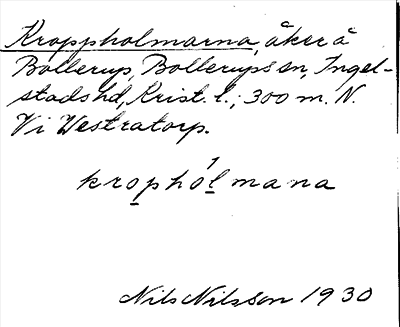 Kroppholmarna, åker å
Bollerup, Bollerups sn, Ingel-
stads hd, Krist. l.; 300 m. N.
V i Westratorp.
krophólmana
Nils Nilsson 1930